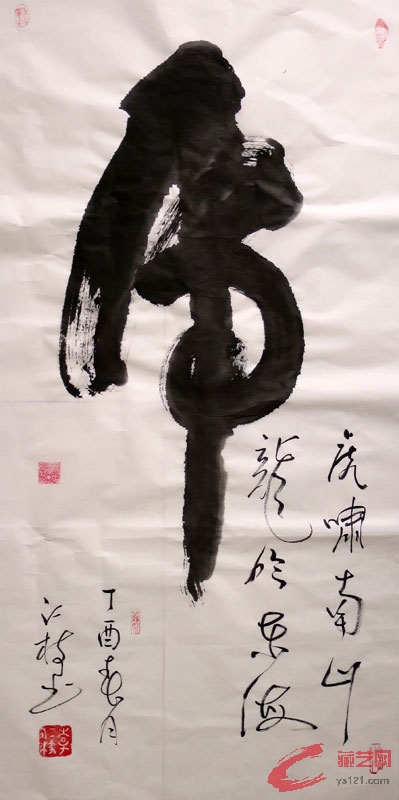 虎
虎啸南山
龍吟东海
丁酉春月
仁枝书
藏艺网
ys121.com